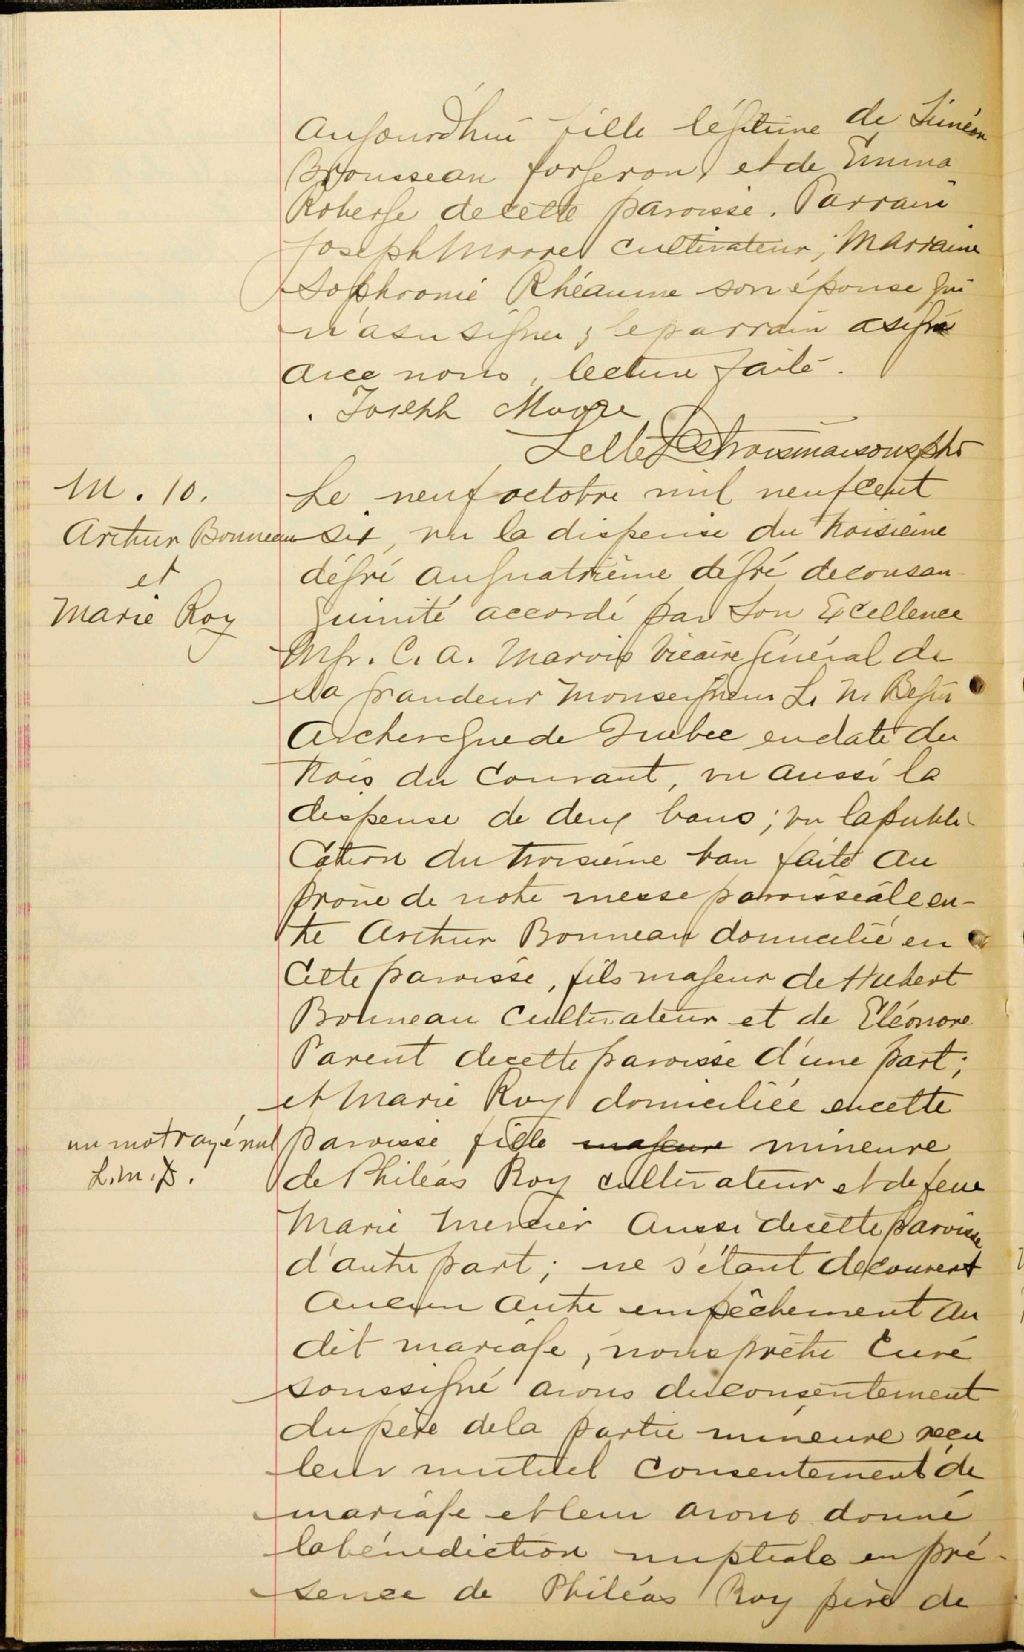 aujourd'hui fille légitime de Siméon
Brousseau forgeron et de Emma
Roberge de cette paroisse. Parrain
Joseph Moore cultivateur; Marraine
Sophronie Rhéaume son épouse qui
n'a su signer; le parrain a signé
avec nous, lecture faite.
. Joseph Moore
Destroismaisons ptr
M. 10.
Arthur Bonneau
et
Marie Roy
Le neuf octobre mil neuf cent
six, vu la dispense du troisième
dégré au quatrième dégré de consan-
guinité accordé par Son Excellence
Mgr. C. A. Marois Vicaire Général de
sa grandeur Monseigneur L. N. Bégin
Archevêque de Québec en date du
trois du courant, vu aussi la
dispense de deux bans; vu la publi-
cation du troisième ban faite au
prône de notre messe paroissiale en-
tre Arthur Bonneau domicilié en
cette paroisse, fils majeur de Hubert
Bonneau cultivateur et de Eléonore
Parent de cette paroisse d'une part;
et Marie Roy domiciliée en cette
un mot rayé nul
L.M.D.
paroisse fille majeure mineure
de Philéas Roy cultivateur et de feue
Marie Mercier aussi de cette paroisse
d'autre part; ne s'étant découvert
aucun autre empêchement au
dit mariage, nous prêtre Curé
soussigné avons du consentement
du père de la partie mineure reçu
leur mutuel consentement de
mariage et leur avons donné
la bénédiction nuptiale en pré-
sence de Philéas Roy père de